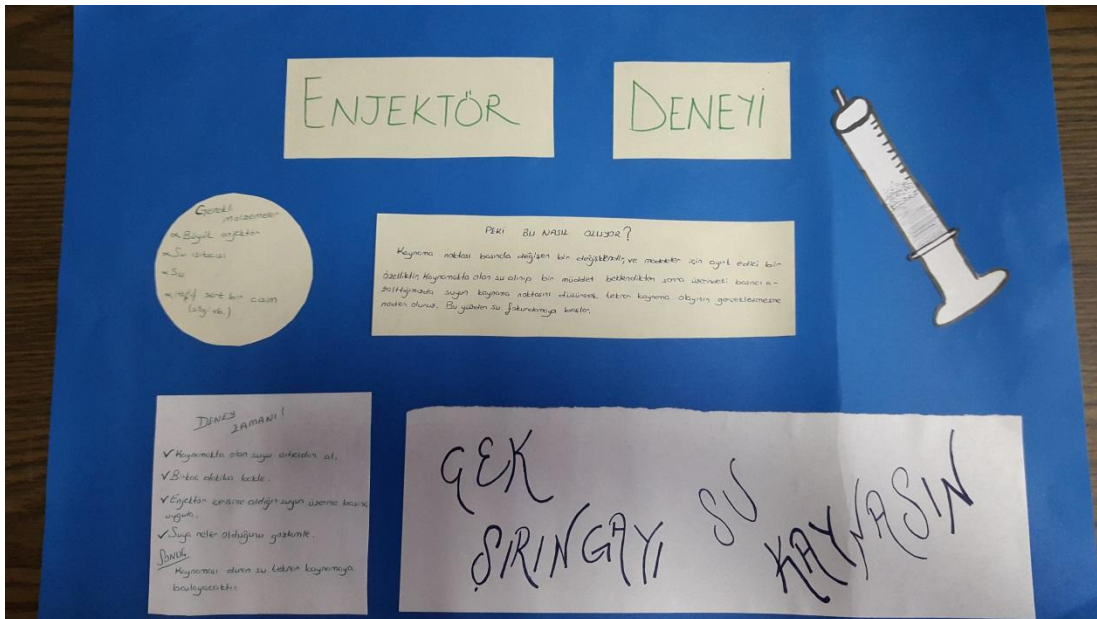 ENJEKTÖR DENEYİ
Gerekli
malzemeler
Büyük enjektör
Su ısıtıcısı
Su
Hafif sert bir cisim
PEKİ BU NASIL OLUYOR?
Kaynama noktası basınçla değişen bir değişkendir, ve maddeler için ayırt edici bir
özelliktir. Kaynamakta olan su alınıp bir müddet beklendikten sonra üzerindeki basıncı a-
zalttığımızda suyun kaynama noktasını düşürerek tekrar kaynama olayının gerçekleşmesine
neden olunur. Bu yüzden su fokurdamaya başlar.
DENEY
ZAMANI!
✓ Kaynamakta olan suyu al.
✓ Birkaç dakika bekle.
✓ Enjektör içerisine aldığın suyun üzerine basınç
uygula.
✓ Suya neler olduğunu gözlemle.
SONUÇ
Kaynaması duran su tekrar kaynamaya
başlayacaktır.
ÇEK
ŞIRINGAYI SU
KAYNASIN